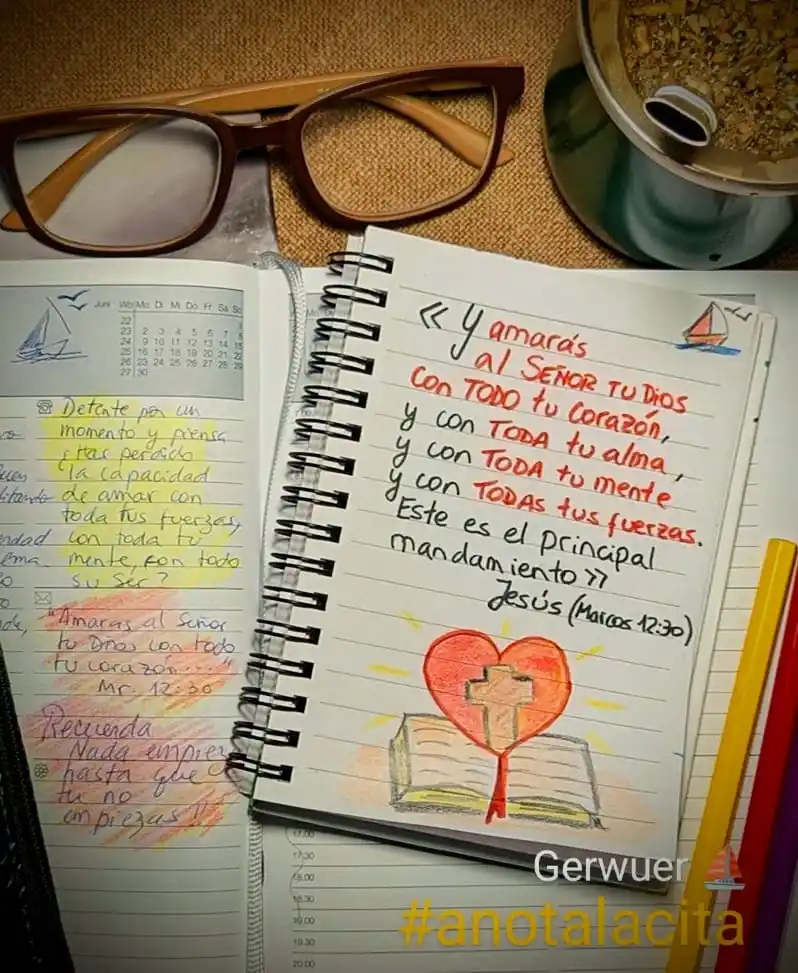 Juni Wo Mo Di Mi Do Fr Sa So
22
23 2 3 4 5 6 7 8
24 9 10 11 12 13 14 15
25 16 17 18 19 20 21 22
26 23 24 25 26 27 28 29
27 30
Detente por un
momento y piensa
¿Has perdido
la capacidad
de amar con
toda tus fuerzas,
con toda tu
mente, con todo
su Ser?
"Amaras al Señor
tu Dios con todo
tu corazón...."
Mr. 12:30
Recuerda
Nada empieza
hasta que
tu no
empiezas!!
«Y amarás
al SEÑOR TU Dios
con TODO tu Corazón,
y con TODA tu alma,
y con TODA tu mente
y con TODAS tus fuerzas.
Este es el principal
mandamiento»
Jesús (Marcos 12:30)
17.00
17.30
19.00
19.30
20.00
Gerwuer
#anotalacita